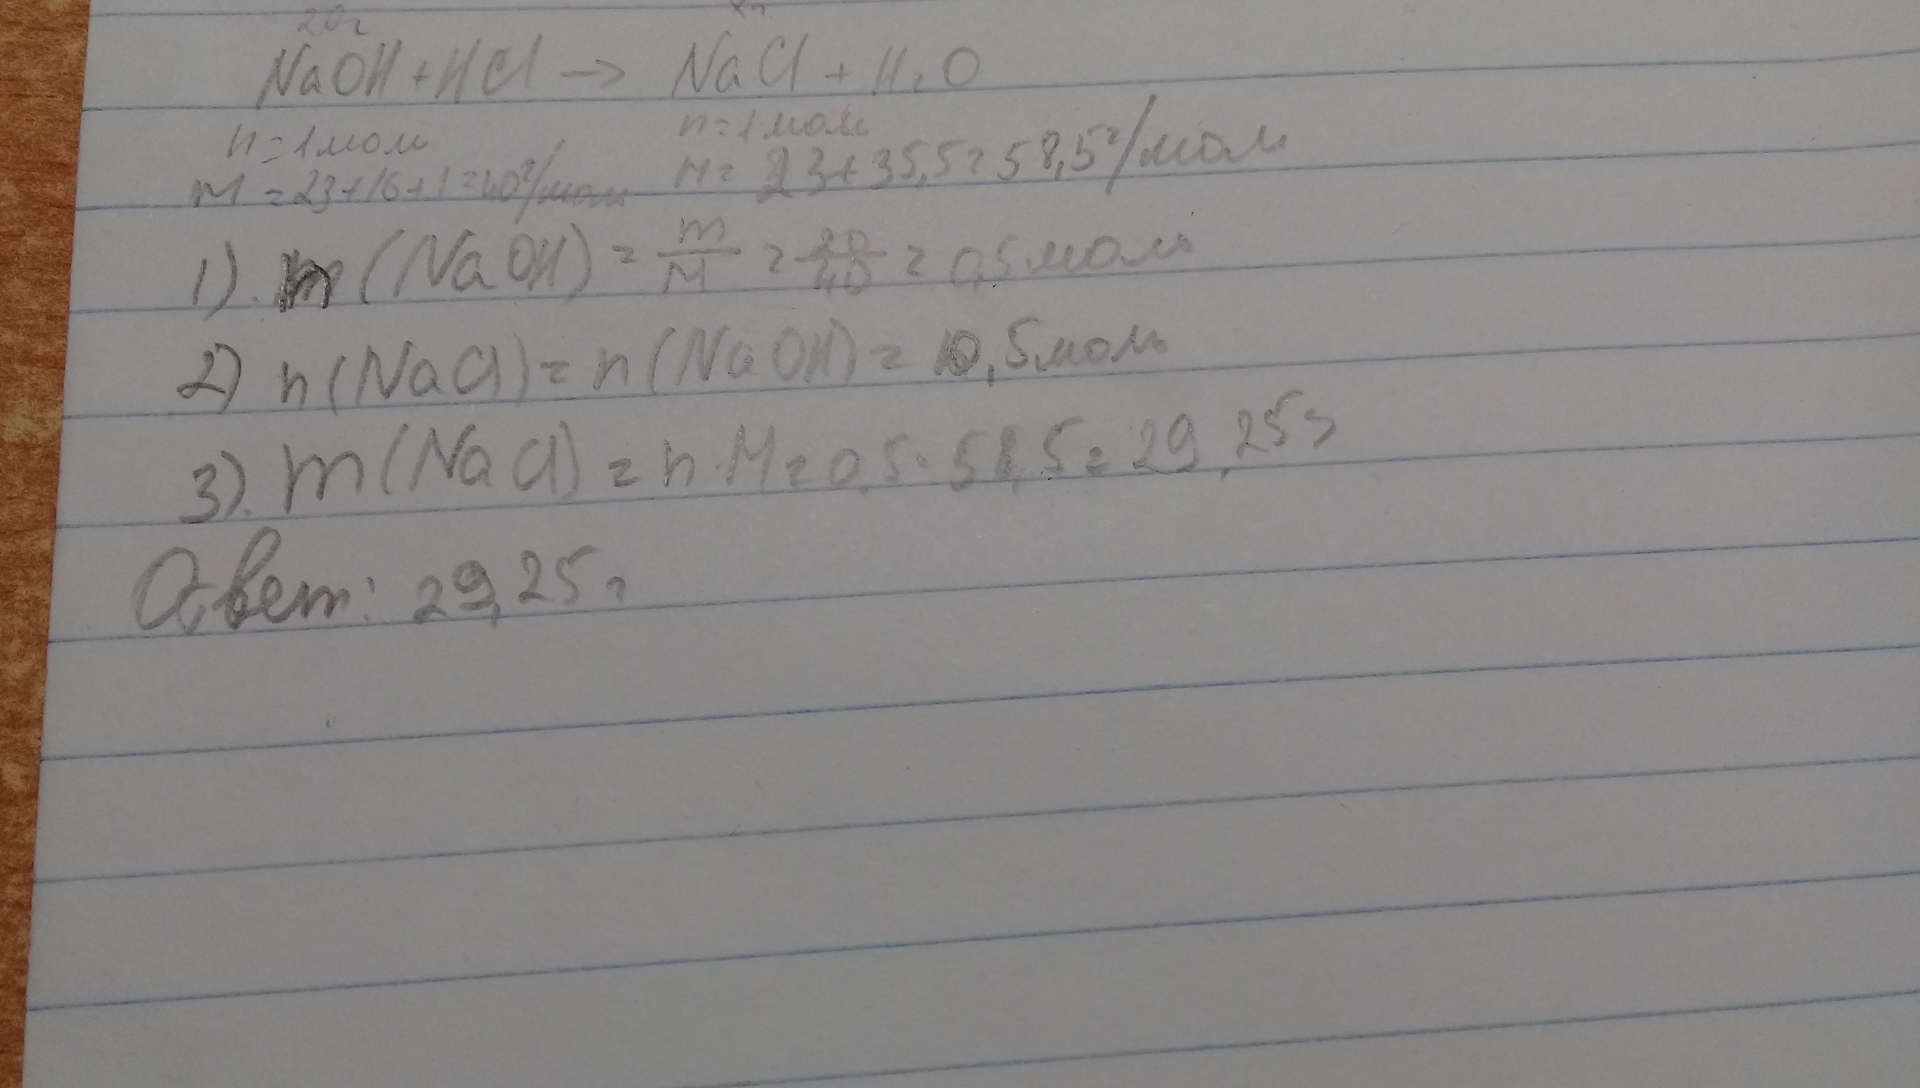 20г хг
NaOH + HCl → NaCl + H₂O
n = 1 моль n = 1 моль
M = 23+16+1=40г/моль M = 23+35,5=58,5г/моль
1). n (NaOH) = m/M = 20/40 = 0,5 моль
2) n (NaCl) = n (NaOH) = 0,5 моль
3). m (NaCl) = n · M = 0,5 · 58,5 = 29,25г
Ответ: 29,25г